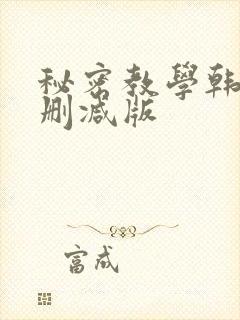 秘密教學韩
删减版
富成